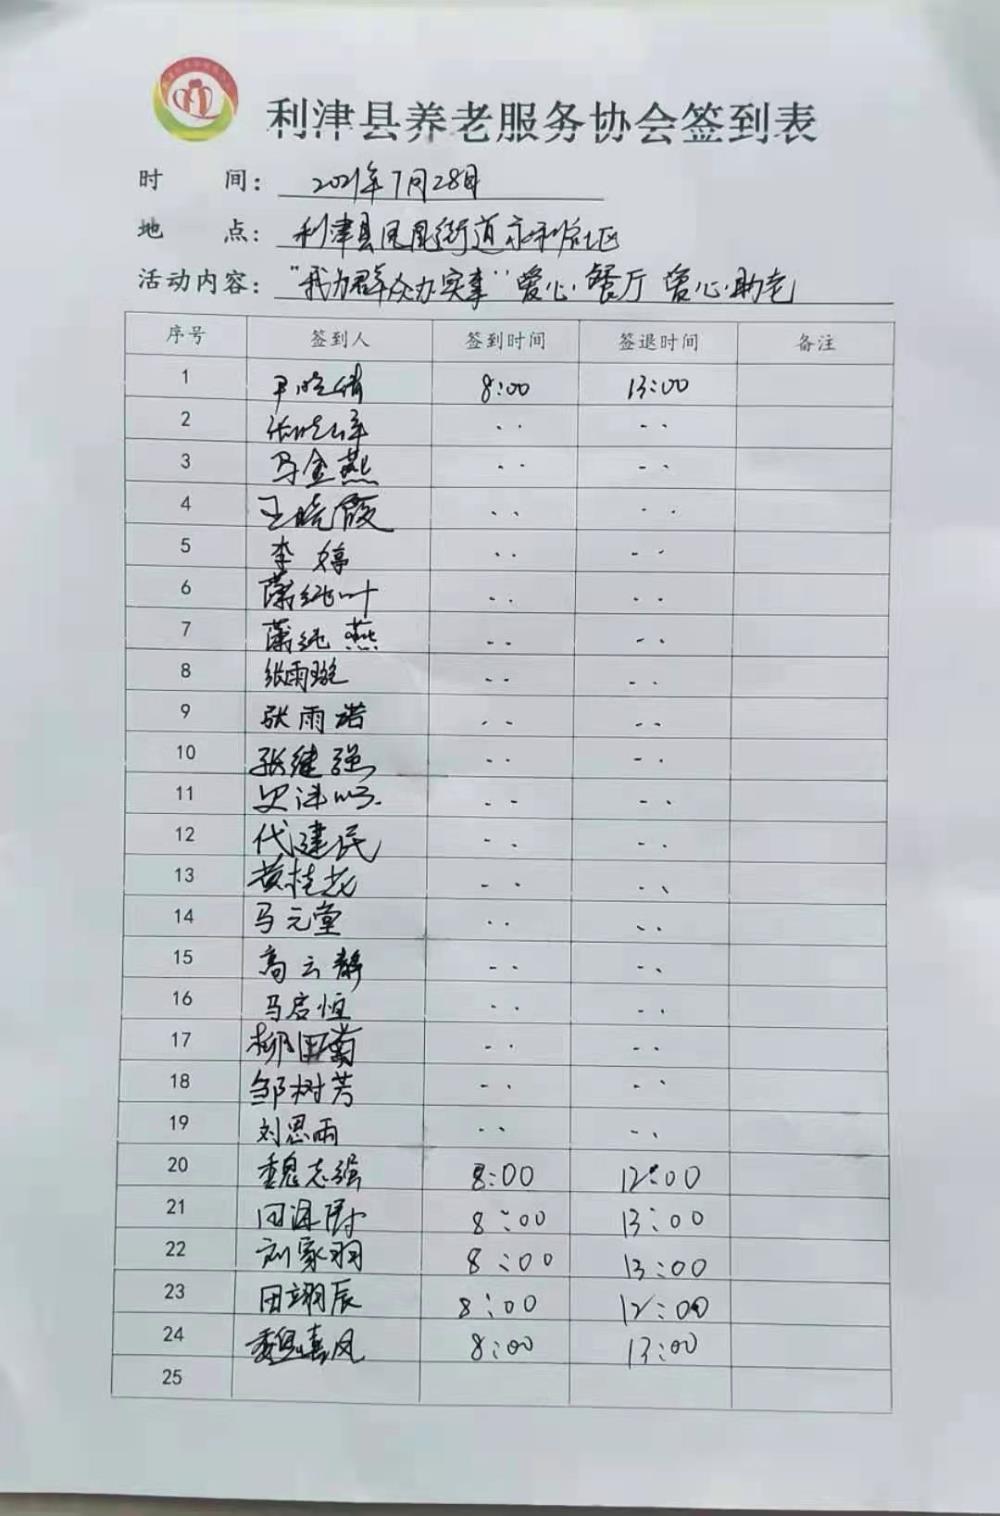 利津县养老服务协会签到表
时 间: 2021年7月28日
地 点: 利津县凤凰街道 社区
活动内容: "我为群众办实事"爱心·餐厅 爱心·助老
序号 签到人 签到时间 签退时间 备注
1 尹晓倩 8:00 13:00
2 ‥ ‥
3 马金燕 ‥ ‥
4 王晓霞 ‥ ‥
5 李婷 ‥ ‥
6 萧纯叶 ‥ ‥
7 萧纯燕 ‥ ‥
8 张雨璇 ‥ ‥
9 张雨诺 ‥ ‥
10 张继强 ‥ ‥
11 ‥ ‥
12 代建民 ‥ ‥
13 黄桂花 ‥ ‥
14 马元堂 ‥ ‥
15 高云静 ‥ ‥
16 马启恒 ‥ ‥
17 ‥ ‥
18 邹树芳 ‥ ‥
19 刘思雨 ‥ ‥
20 魏志强 8:00 12:00
21 8:00 13:00
22 刘家羽 8:00 13:00
23 田翊辰 8:00 12:00
24 魏嘉风 8:00 13:00
25